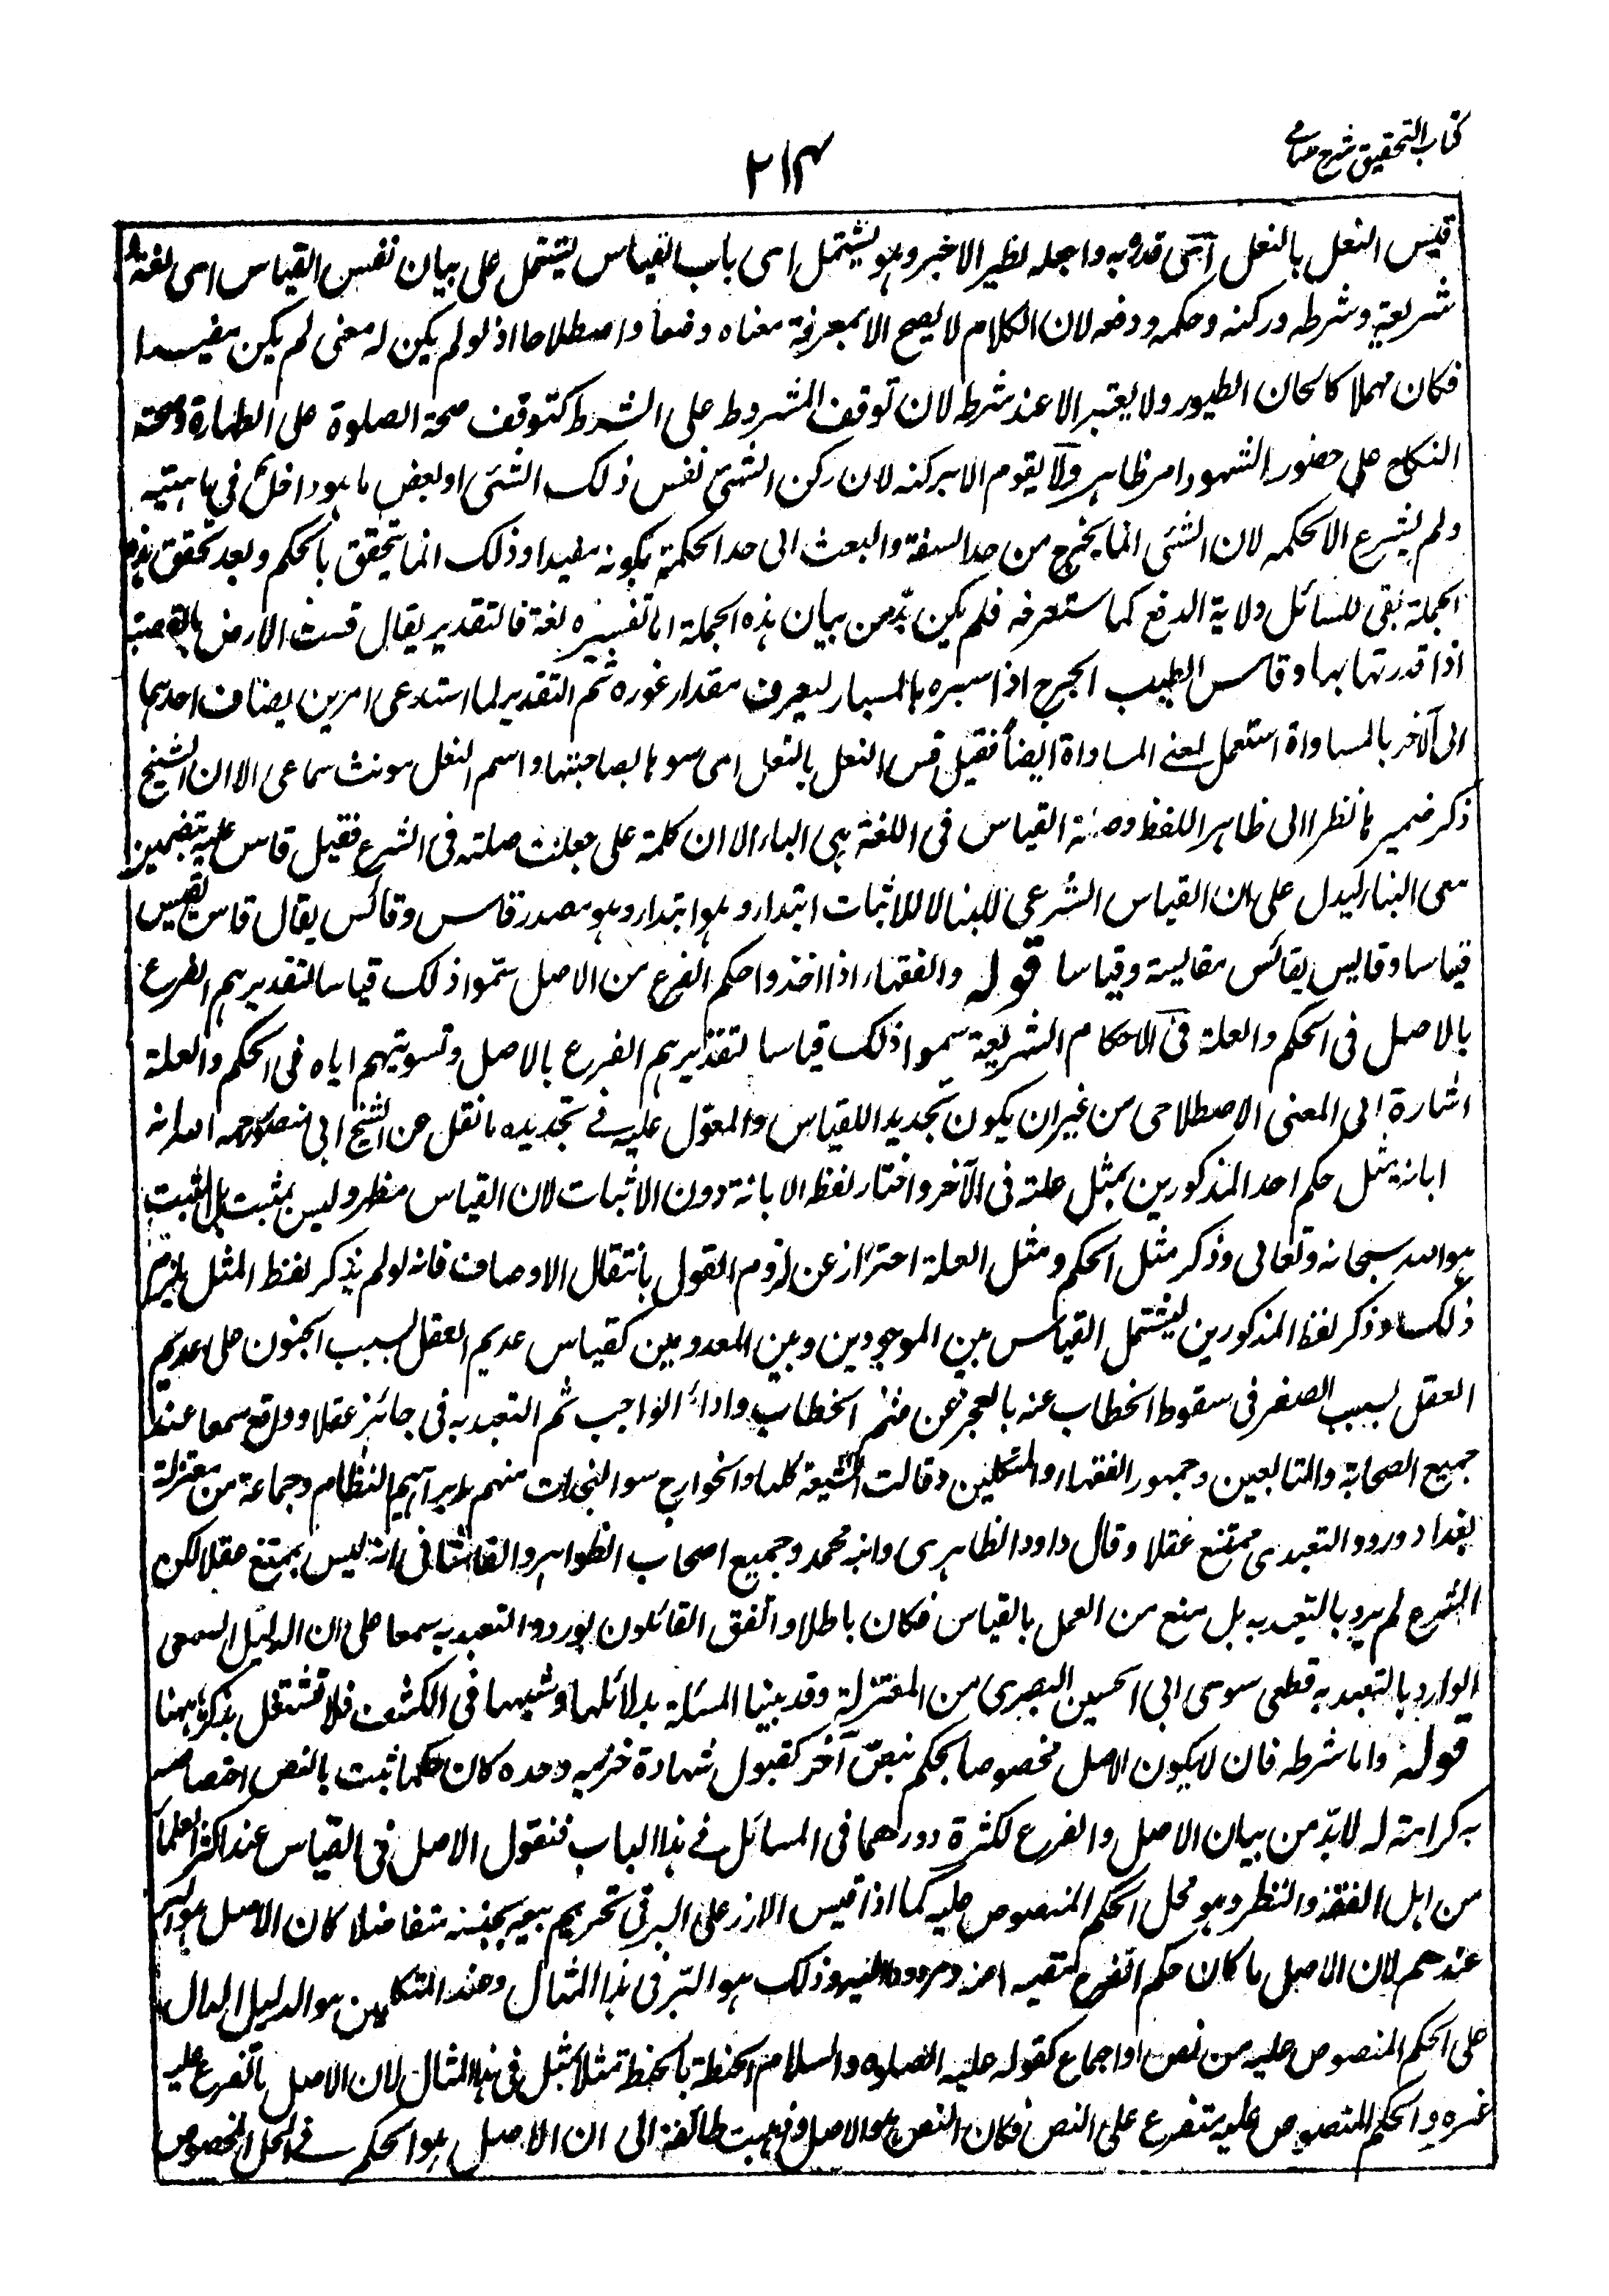 كتاب التحقيق شرح حسامي
٢١٤
قيس النعل بالنعل اى قدره به واجعله نظير الاخر وهو يشتمل اى باب القياس يشتمل على بيان نفس القياس اى لغة و
شريعة وشرطه وركنه وحكمه ودفعه لان الكلام لا يصح الا بمعرفة معناه وضعا واصطلاحا اذ لو لم يكن له معنى لم يكن مفيدا
فكان مهملا كالحان الطيور ولا يعتبر الا عند شرطه لان توقف المشروط على الشرط كتوقف صحة الصلوة على الطهارة وصحة
النكاح على حضور الشهود امر ظاهر ولا يقوم الا بركنه لان ركن الشئ نفس ذلك الشئ او بعض ما هو داخل فى ماهيته
ولم يشرع الا لحكمه لان الشئ انما يخرج من حد السفه والبعث الى حد الحكمة بكونه مفيدا وذلك انما يتحقق بالحكم وبعد تحقق هذه
الجملة بقى للسائل ولاية الدفع كما ستعرفه فلم يكن بد من بيان هذه الجملة اما تفسيره لغة فالتقدير يقال قست الارض بالقصبة
اذا قدرتها بها وقاس الطبيب الجرح اذا سبره بالمسبار ليعرف مقدار غوره ثم التقدير لما استدعى امرين يضاف احدهما
الى الآخر بالمساواة استعمل لمعنى المساواة ايضا فقيل قس النعل بالنعل اى سوها بصاحبتها واسم النعل مونث سماعى الا ان الشيخ
ذكر ضميرها نظرا الى ظاهر اللفظ وصلة القياس فى اللغة هى الباء الا ان كلمة على جعلت صلته فى الشرع فقيل قاس عليه بتضمين
معى البناء ليدل على ان القياس الشرعى للبناء لا للاثبات ابتداء وهو ابتداء وهو مصدر قاس وقائس يقال قاس يقيس
قياسا وقايس يقائس مقايسة وقياسا قوله والفقهاء اذا اخذوا حكم الفرع من الاصل سموا ذلك قياسا لتقديرهم الفرع
بالاصل فى الحكم والعلة فى الاحكام الشريعة سموا ذلك قياسا لتقديرهم الفرع بالاصل وتسويتهم اياه فى الحكم والعلة
اشارة الى المعنى الاصطلاحى من غير ان يكون تحديدا للقياس والمعول عليه فى تحديده ما نقل عن الشيخ ابى منصور رحمه الله انه
ابانة مثل حكم احد المذكورين بمثل علته فى الآخر واختار لفظ الابانة دون الاثبات لان القياس مظهر وليس بمثبت بل المثبت
هو الله سبحانه وتعالى وذكر مثل الحكم ومثل العلة احتراز عن لزوم القول بانتقال الاوصاف فانه لو لم يذكر لفظ المثل يلزم
ذلك وذكر لفظ المذكورين ليشتمل القياس بين الموجودين وبين المعدومين كقياس عديم العقل بسبب الجنون على عديم
العقل بسبب الصغر فى سقوط الخطاب عنه بالعجز عن فهم الخطاب واداء الواجب ثم التعبد به فى جائز عقلا وواقع سمعا عند
جميع الصحابة والتابعين وجمهور الفقهاء والمتكلمين وقالت الشيعة كلها والخوارج سوى النجدات منهم وابراهيم النظام وجماعة من معتزلة
بغداد ورود التعبد ى ممتنع عقلا وقال داود الظاهرى وابنه محمد وجميع اصحاب الظواهر والقاشانى انه ليس بممتنع عقلا لكن
الشرع لم يرد بالتعبد به بل منع من العمل بالقياس فكان باطلا واتفق القائلون بورود التعبد به سمعا على ان الدليل السمعى
الوارد بالتعبد به قطعى سوى ابى الحسين البصرى من المعتزلة وقد بينا المسئلة بدلائلها وشبهها فى الكشف فلا نشتغل بذكرها هنا
قوله واما شرطه فان لا يكون الاصل مخصوصا بحكم بنص آخر كقبول شهادة خزيمه وحده كان حكما ثبت بالنص اختصاصه
به كرامته له لا بد من بيان الاصل والفرع لكثرة دورهما فى المسائل فى هذا الباب فنقول الاصل فى القياس عند اكثر العلماء
من اهل الفقه والنظر وهو محل الحكم المنصوص عليه كما اذا قيس الارز على البر فى تحريم بيعه بجنسه متفاضلا كان الاصل هو البر
عندهم لان الاصل ما كان حكم الفرع مقتبسا منه ومردودا اليه وذلك هو البر فى هذا المثال وعند المتكلمين هو الدليل الدال
على الحكم المنصوص عليه من نص او اجماع كقوله عليه الصلوة والسلام الحنطة بالحنطة مثلا بمثل فى هذا المثال لان الاصل ما تفرع عليه
غيره والحكم المنصوص عليه متفرع على النص فكان النص هو الاصل وذهبت طائفة الى ان الاصل هو الحكم فى المحل المخصوص